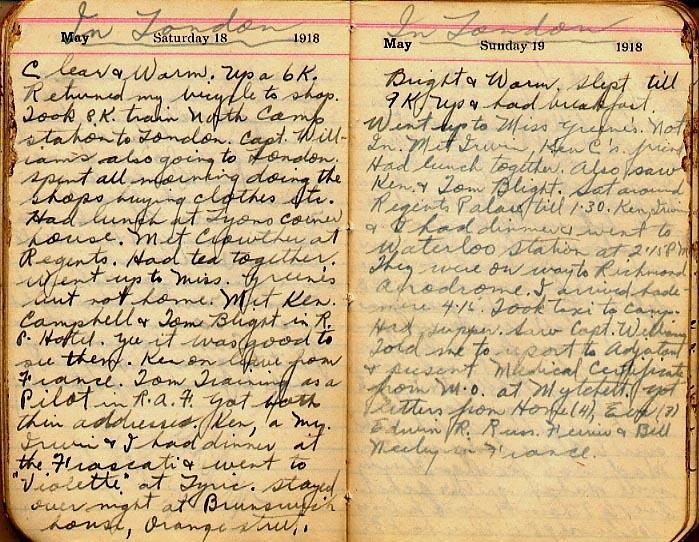 In London
May Saturday 18 1918
Clear & Warm. Up a 6K.
Returned my bicycle to shop.
Took 8K. train North Camp
station to London. Capt. Will-
iams also going to London.
Spent all morning doing the
shops buying clothes etc.
Had lunch at Lyons corner
house. Met Crowther at
Regents. Had tea together.
Went up to Miss. Greene's
but not home. Met Ken.
Campbell & Tom Blight in R.
P. Hotel. Gee it was good to
see them. Ken on leave from
France. Tom Training as a
Pilot in R.A.F. Got both
their addresses. Ken, a Mr.
Irwin & I had dinner at
the Frascati & went to
"Violette" at Lyric. Stayed
over night at Brunswick
house, Orange
In London
May Sunday 19 1918
Bright & Warm. Slept till
9K. Up & had breakfast.
Went up to Miss Greene's. Not
In. Met Irwin, Ken C's. friend
Had lunch together. Also saw
Ken. & Tom Blight. Sat around
Regents Palace till 1.30. Ken, Irwin
& I had dinner & went to
Waterloo station at 2.15 P.M.
They were on way to Richmond
Aerodrome. I arrived
4.15. Took taxi to camp.
Had supper. Saw Capt. Williams
Told me to report to Adjutant
& present Medical Certificate
from M.O. at Mytchett. Got
letters from Home (4),
Edwin R. Russ. & Bill
in France.